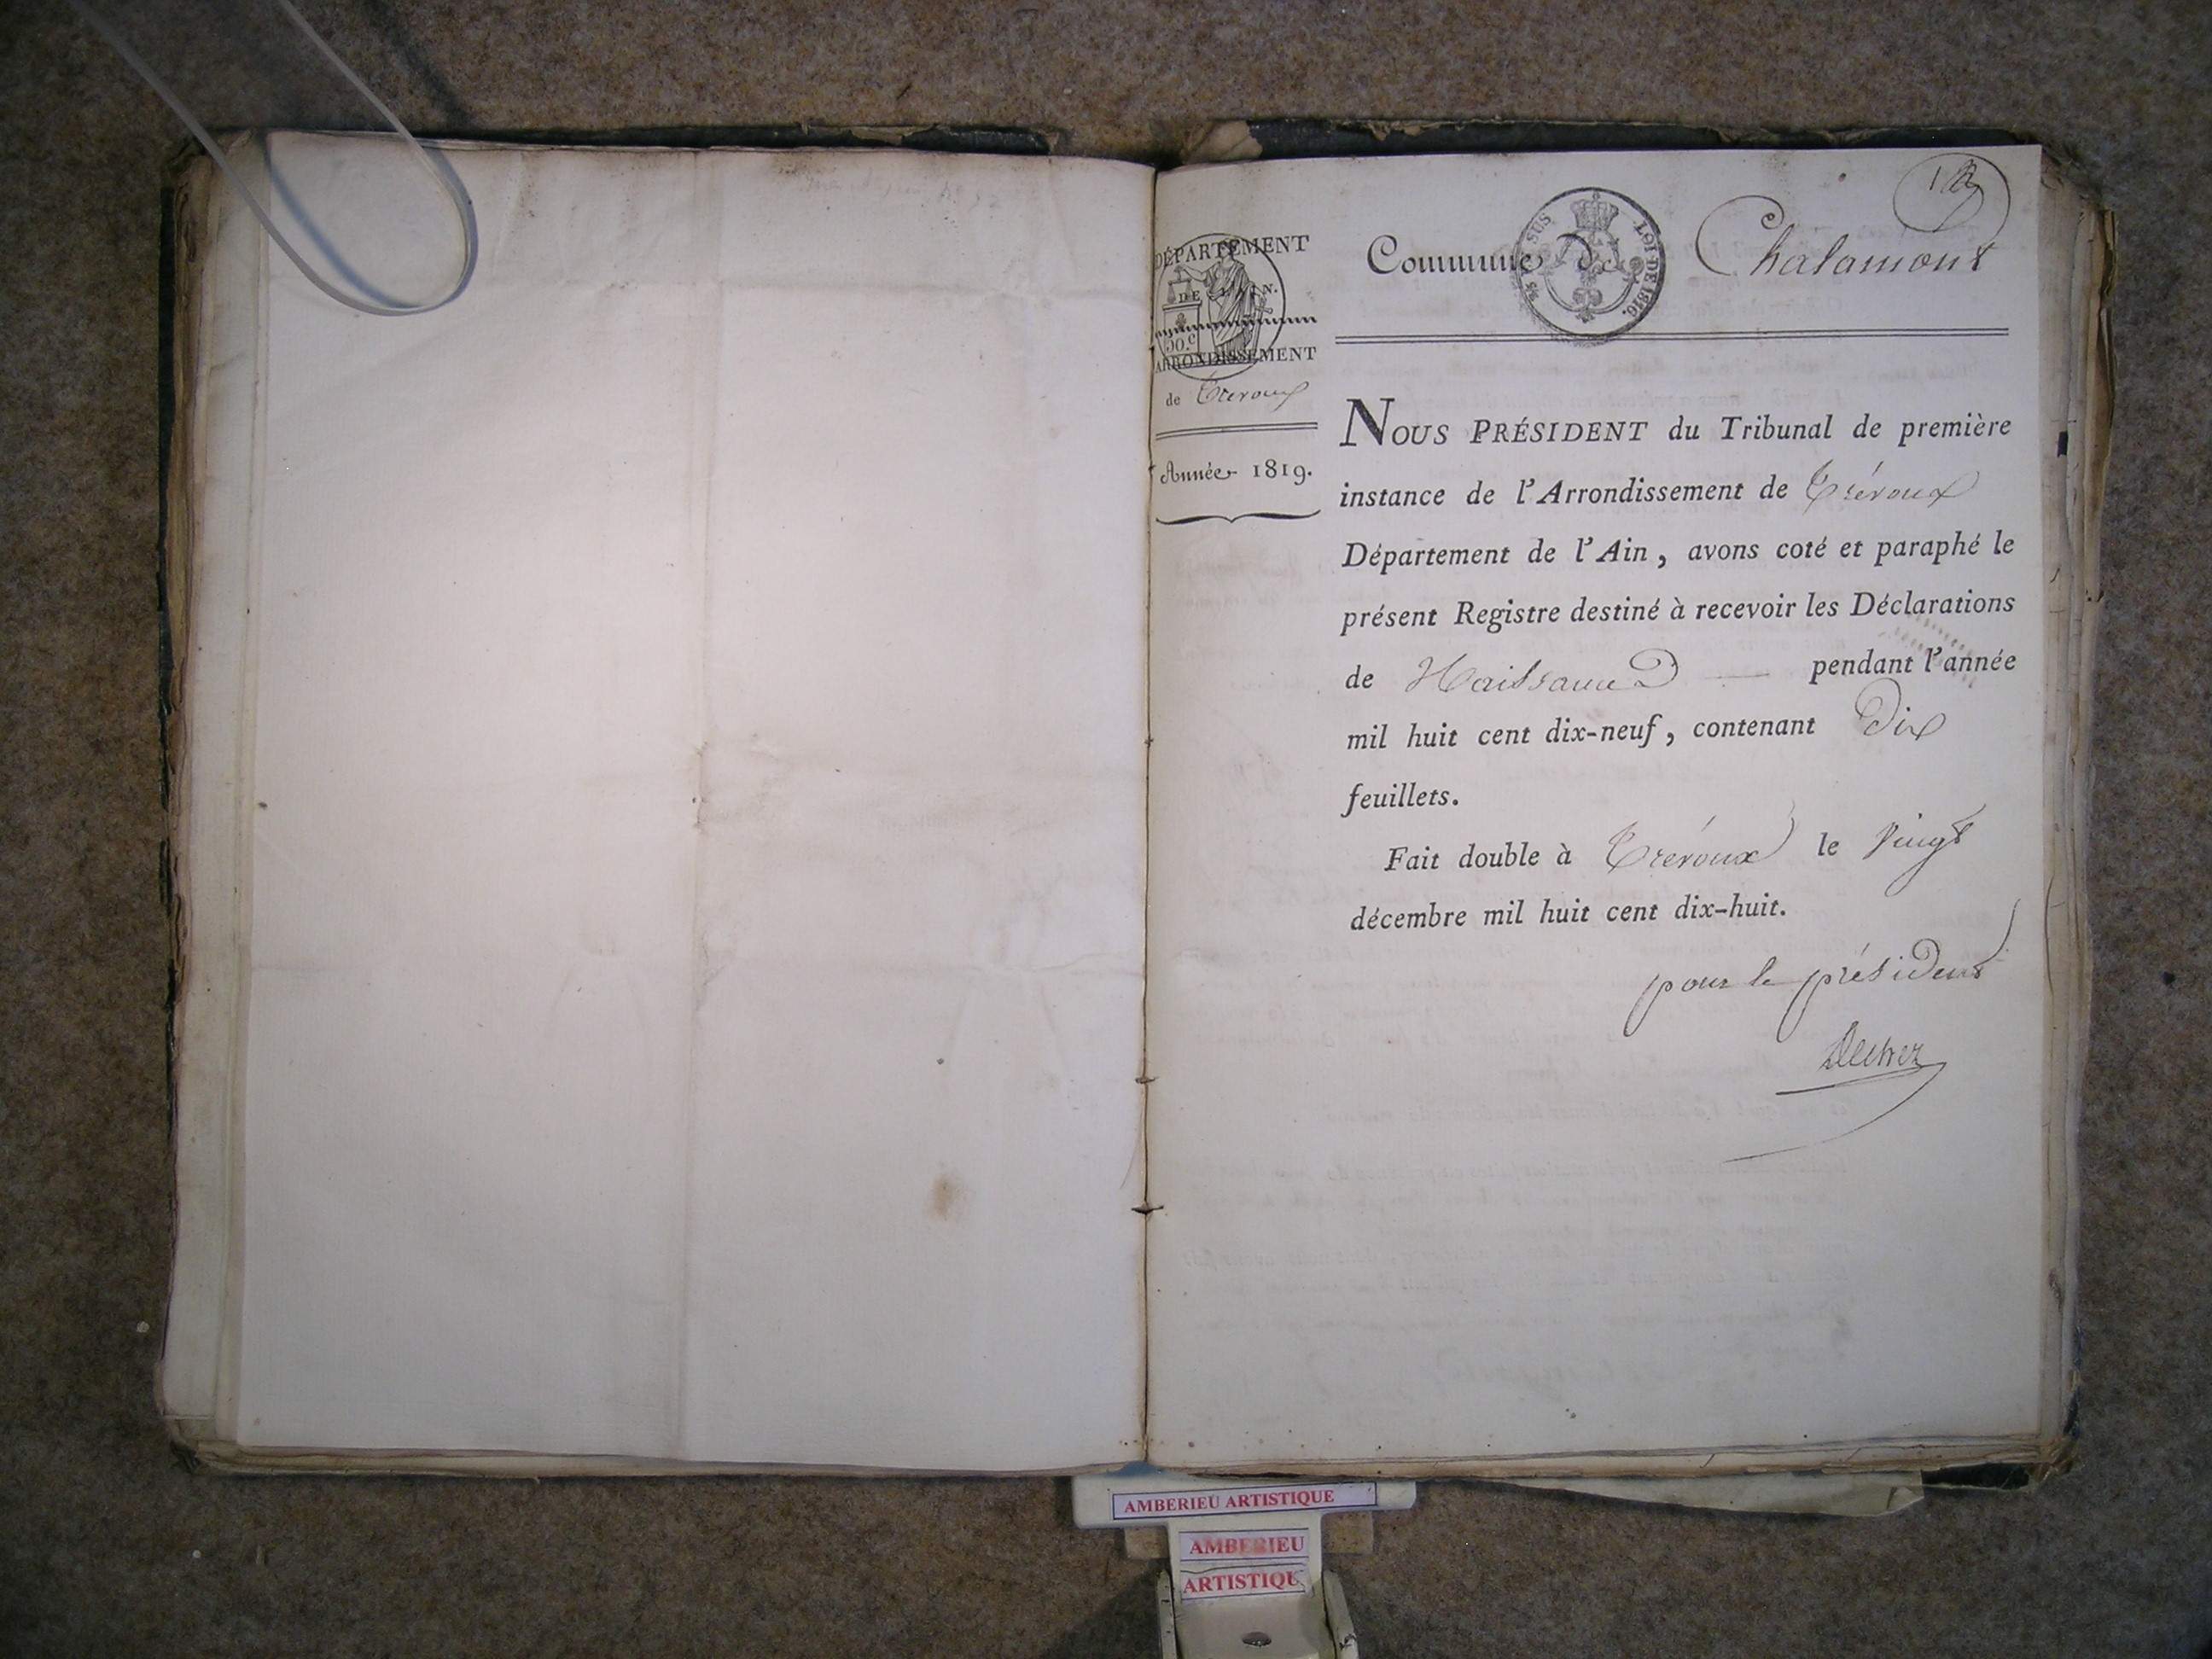 Commune de Chalamont
EN SUS LOI DE 1816.
DÉPARTEMENT
DE L'AIN.
50.c
ARRONDISSEMENT
de Trévoux
Année 1819.
NOUS PRÉSIDENT du Tribunal de première
instance de l'Arrondissement de Trévoux
Département de l'Ain, avons coté et paraphé le
présent Registre destiné à recevoir les Déclarations
de Naissance pendant l'année
mil huit cent dix-neuf, contenant Dix
feuillets.
Fait double à Trévoux le vingt
décembre mil huit cent dix-huit.
pour le président
AMBERIEU ARTISTIQUE
AMBERIEU
ARTISTIQU